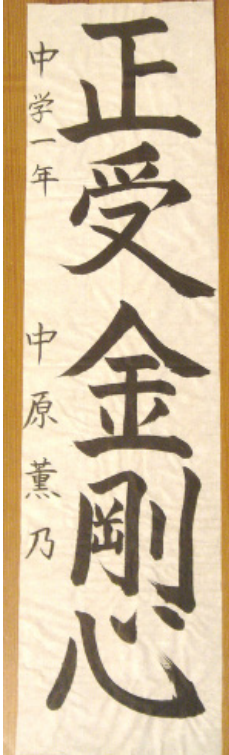 正受金剛心
中学一年 中原薫乃